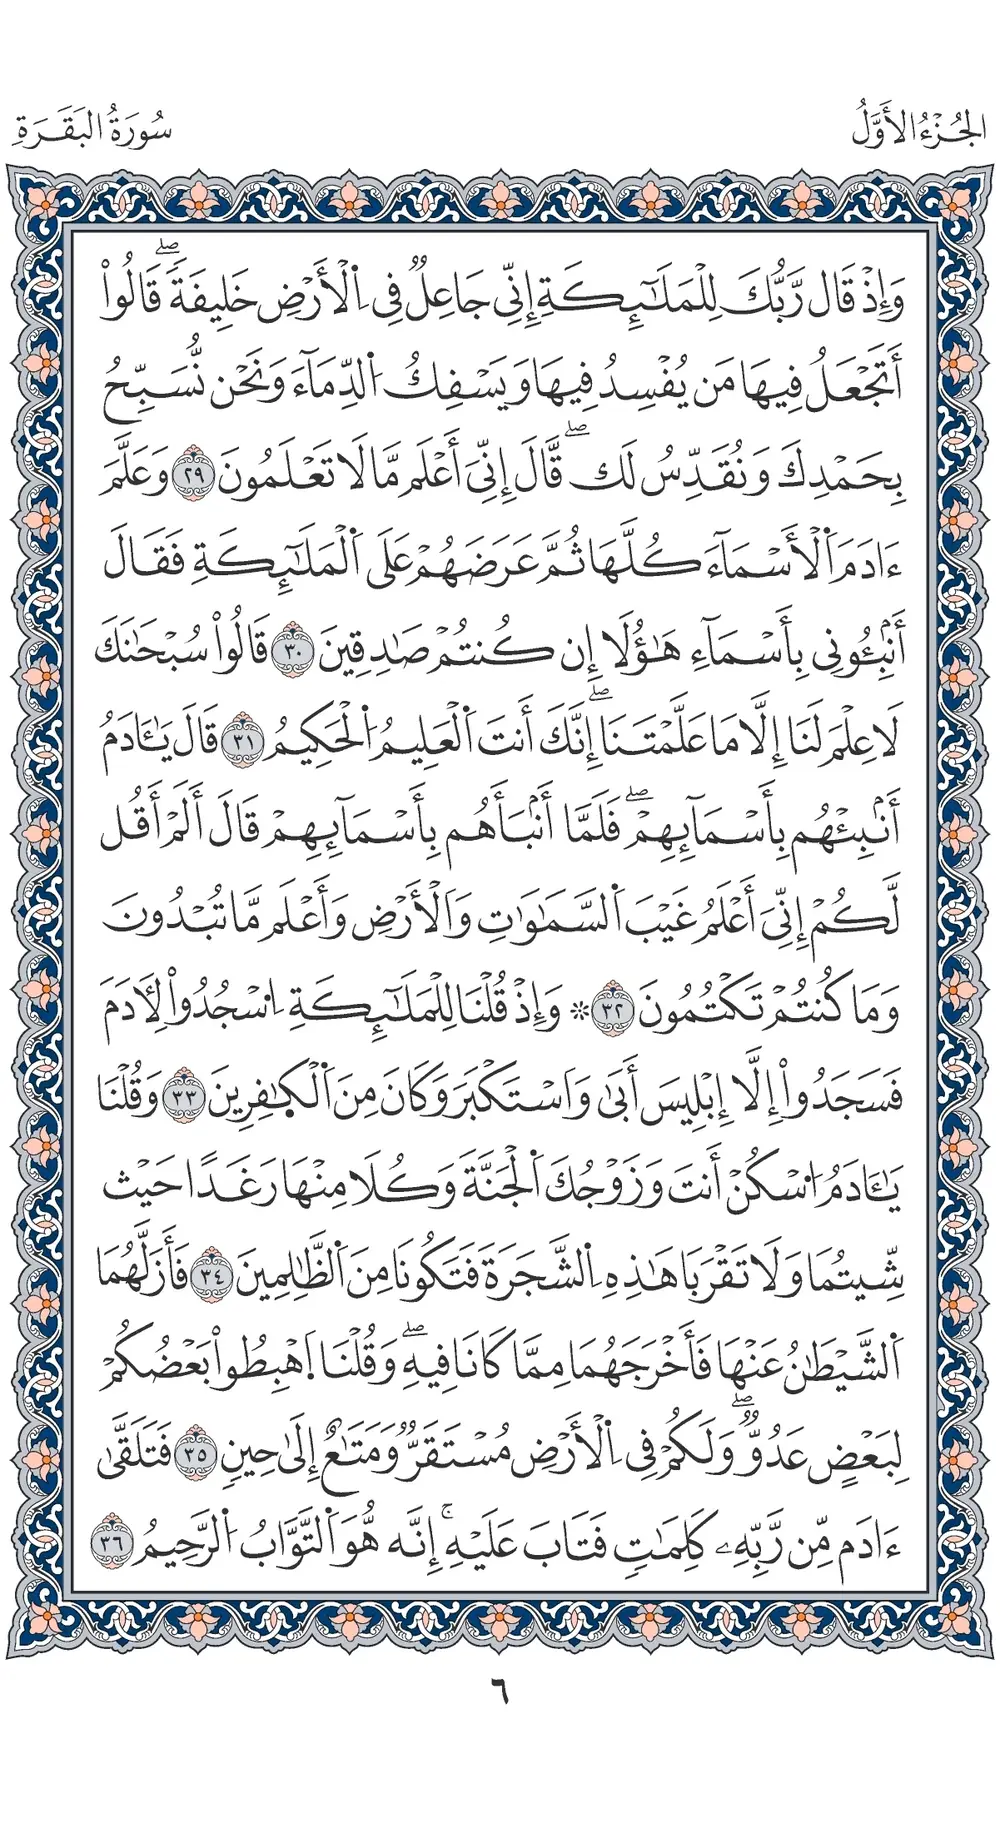 الجُزْءُ الأَوَّلُ
سُورَةُ البَقَرَةِ
وَإِذْ قَال رَّبُّكَ لِلْمَلَٰٓئِكَةِ إِنِّي جَاعِلٌ فِي اِ۬لْأَرْضِ خَلِيفَةًۖ قَالُوٓاْ
أَتَجْعَلُ فِيهَا مَن يُفْسِدُ فِيهَا وَيَسْفِكُ اُ۬لدِّمَآءَ وَنَحْن نُّسَبِّحُ
بِحَمْدِكَ وَنُقَدِّسُ لَكۖ قَّالَ إِنِّيَ أَعْلَم مَّا لَا تَعْلَمُونَ ٢٩ وَعَلَّمَ
ءَادَمَ اَ۬لْأَسْمَآءَ كُلَّهَا ثُمَّ عَرَضَهُمْ عَلَى اَ۬لْمَلَٰٓئِكَةِ فَقَالَ
أَنۢبِـُٔونِي بِأَسْمَآءِ هَٰٓؤُلَا إِن كُنتُمْ صَٰدِقِينَ ٣٠ قَالُواْ سُبْحَٰنَكَ
لَا عِلْمَ لَنَا إِلَّا مَا عَلَّمْتَنَاۖ إِنَّكَ أَنتَ اَ۬لْعَلِيمُ اُ۬لْحَكِيمُ ٣١ قَالَ يَٰـَٔادَمُ
أَنۢبِئْهُم بِأَسْمَآئِهِمْۖ فَلَمَّا أَنۢبَأَهُم بِأَسْمَآئِهِمْ قَالَ أَلَمْ أَقُل
لَّكُمْ إِنِّيَ أَعْلَمُ غَيْبَ اَ۬لسَّمَٰوَٰتِ وَالْأَرْضِ وَأَعْلَم مَّا تُبْدُونَ
وَمَا كُنتُمْ تَكْتُمُونَ ٣٢ ۞ وَإِذْ قُلْنَا لِلْمَلَٰٓئِكَةِ اِ۟سْجُدُواْ لِأٓدَمَ
فَسَجَدُواْ إِلَّا إِبْلِيسَ أَبَىٰ وَاَسْتَكْبَرَ وَكَانَ مِنَ اَ۬لْكٰ۪فِرِينَ ٣٣ وَقُلْنَا
يَٰـَٔادَمُ اُ۟سْكُنْ أَنتَ وَزَوْجُكَ اَ۬لْجَنَّةَ وَكُلَا مِنْهَا رَغَدًا حَيْث
شِّيتُمَا وَلَا تَقْرَبَا هَٰذِهِ اِ۬لشَّجَرَةَ فَتَكُونَا مِنَ اَ۬لظَّٰلِمِينَ ٣٤ فَأَزَلَّهُمَا
اَ۬لشَّيْطَٰنُ عَنْهَا فَأَخْرَجَهُمَا مِمَّا كَانَا فِيهِۖ وَقُلْنَا اَ۪هْبِطُواْ بَعْضُكُمْ
لِبَعْضٍ عَدُوّٞۖ وَلَكُمْ فِي اِ۬لْأَرْضِ مُسْتَقَرّٞ وَمَتَٰعٌ إِلَىٰ حِينٖ ٣٥ فَتَلَقَّىٰ
ءَادَم مِّن رَّبِّهِۦ كَلِمَٰتٖ فَتَابَ عَلَيْهِۚ إِنَّه هُّوَ اَ۬لتَّوَّابُ اُ۬لرَّحِيمُ ٣٦
٦